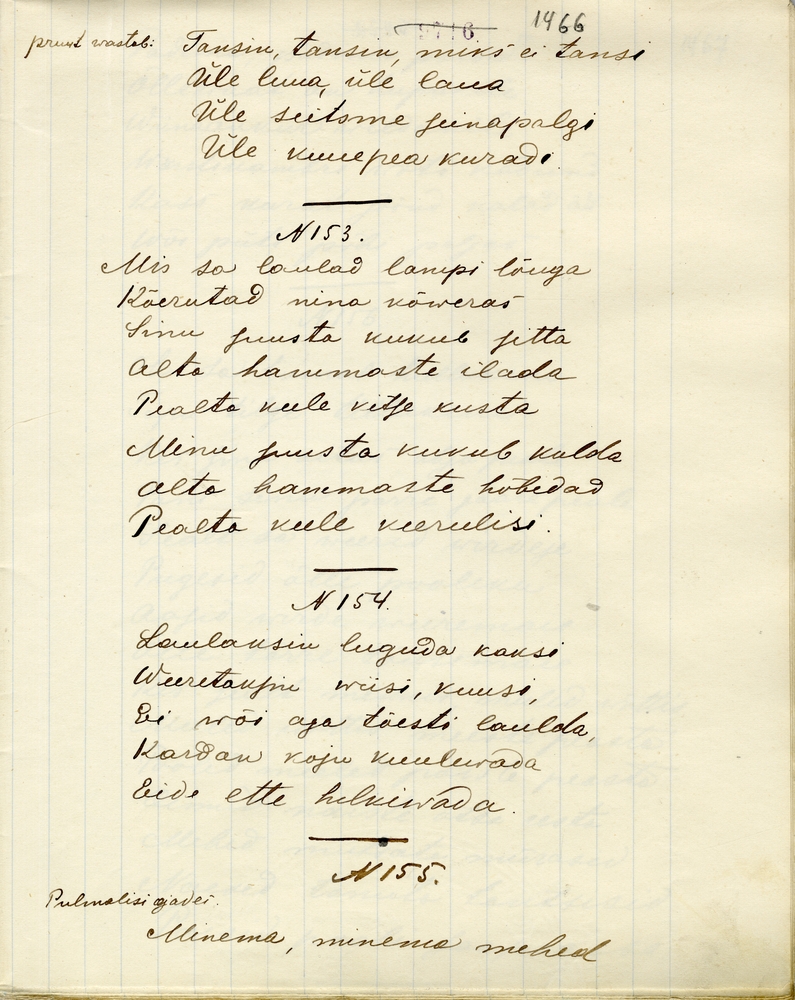 1466
pruut wastab: Tansin, tansin, miks ei tansi
Üle luua, üle laua
Üle seitsme seinapalgi
Üle kuuepea kuradi.
N 153.
Mis sa laulad lampi lõuga
Käerutad nina kõweras
Sinu suusta kukub sitta
Alta hammaste ilada
Pealta keele kitse kusta
Minu suusta kukub kulda
Alta hammaste hõbedad
Pealta keele keerulisi.
N 154.
Laulaksin luguda kaksi
Weeretaksin wiisi, kuusi,
Ei wõi aga tõesti laulda,
Kardan koju kuulewada
Eide ette helkiwada.
N 155.
Pulmalisi ajades.
Minema, minema mehed